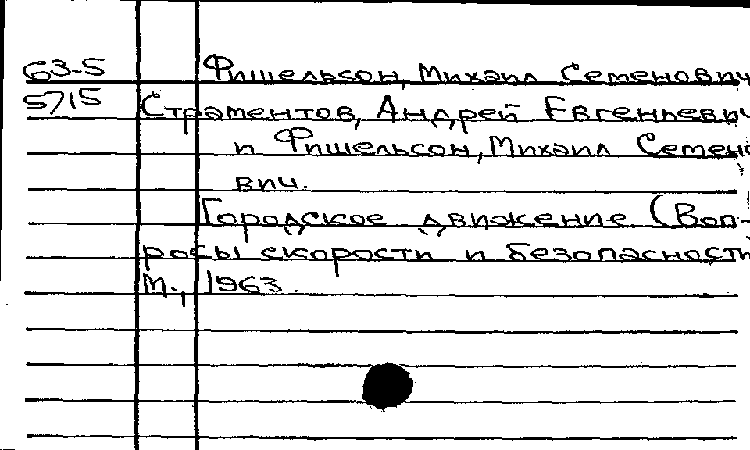 63-5 Фишельсон, Михаил Семенович
5715 Страментов, Андрей Евгеньевич
и Фишельсон, Михаил Семено
вич.
Городское движение (Воп-
росы скорости и безопасности
М., 1963.